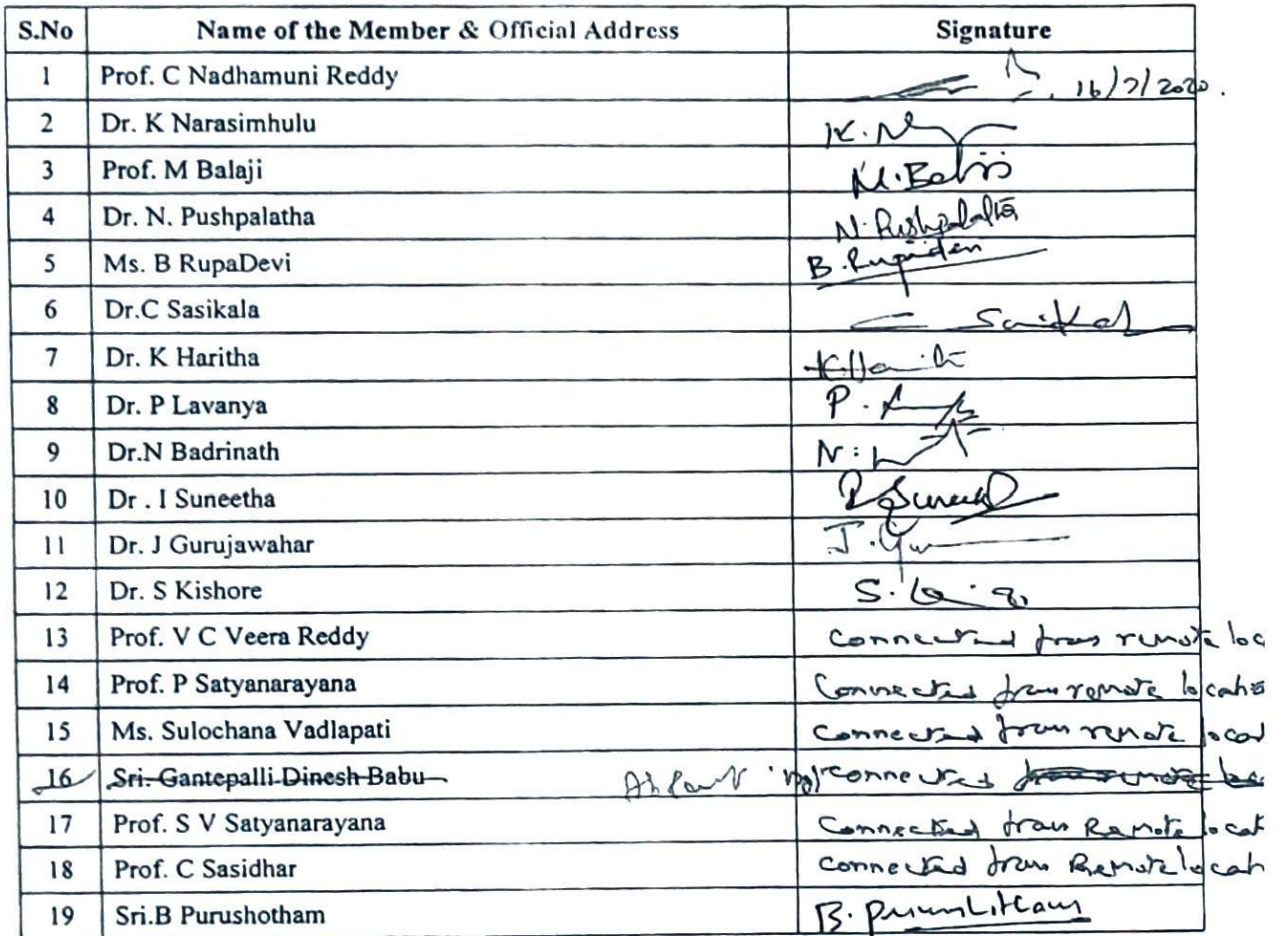 S.No Name of the Member & Official Address Signature
1 Prof. C Nadhamuni Reddy 16/7/2020.
2 Dr. K Narasimhulu K.N
3 Prof. M Balaji M.Balaji
4 Dr. N. Pushpalatha N.Pushpalatha
5 Ms. B RupaDevi B.Rupadevi
6 Dr.C Sasikala C Sasikal
7 Dr. K Haritha
8 Dr. P Lavanya P.
9 Dr.N Badrinath N.
10 Dr . I Suneetha
11 Dr. J Gurujawahar J.Gu
12 Dr. S Kishore S.
13 Prof. V C Veera Reddy Connected from remote loc
14 Prof. P Satyanarayana Connected from remote locatio
15 Ms. Sulochana Vadlapati Connected from remote locat
16 Sri. Gantepalli Dinesh Babu Absent not connected from remote loc
17 Prof. S V Satyanarayana Connected from Remote locat
18 Prof. C Sasidhar Connected from Remote locat
19 Sri.B Purushotham B. Purushotham